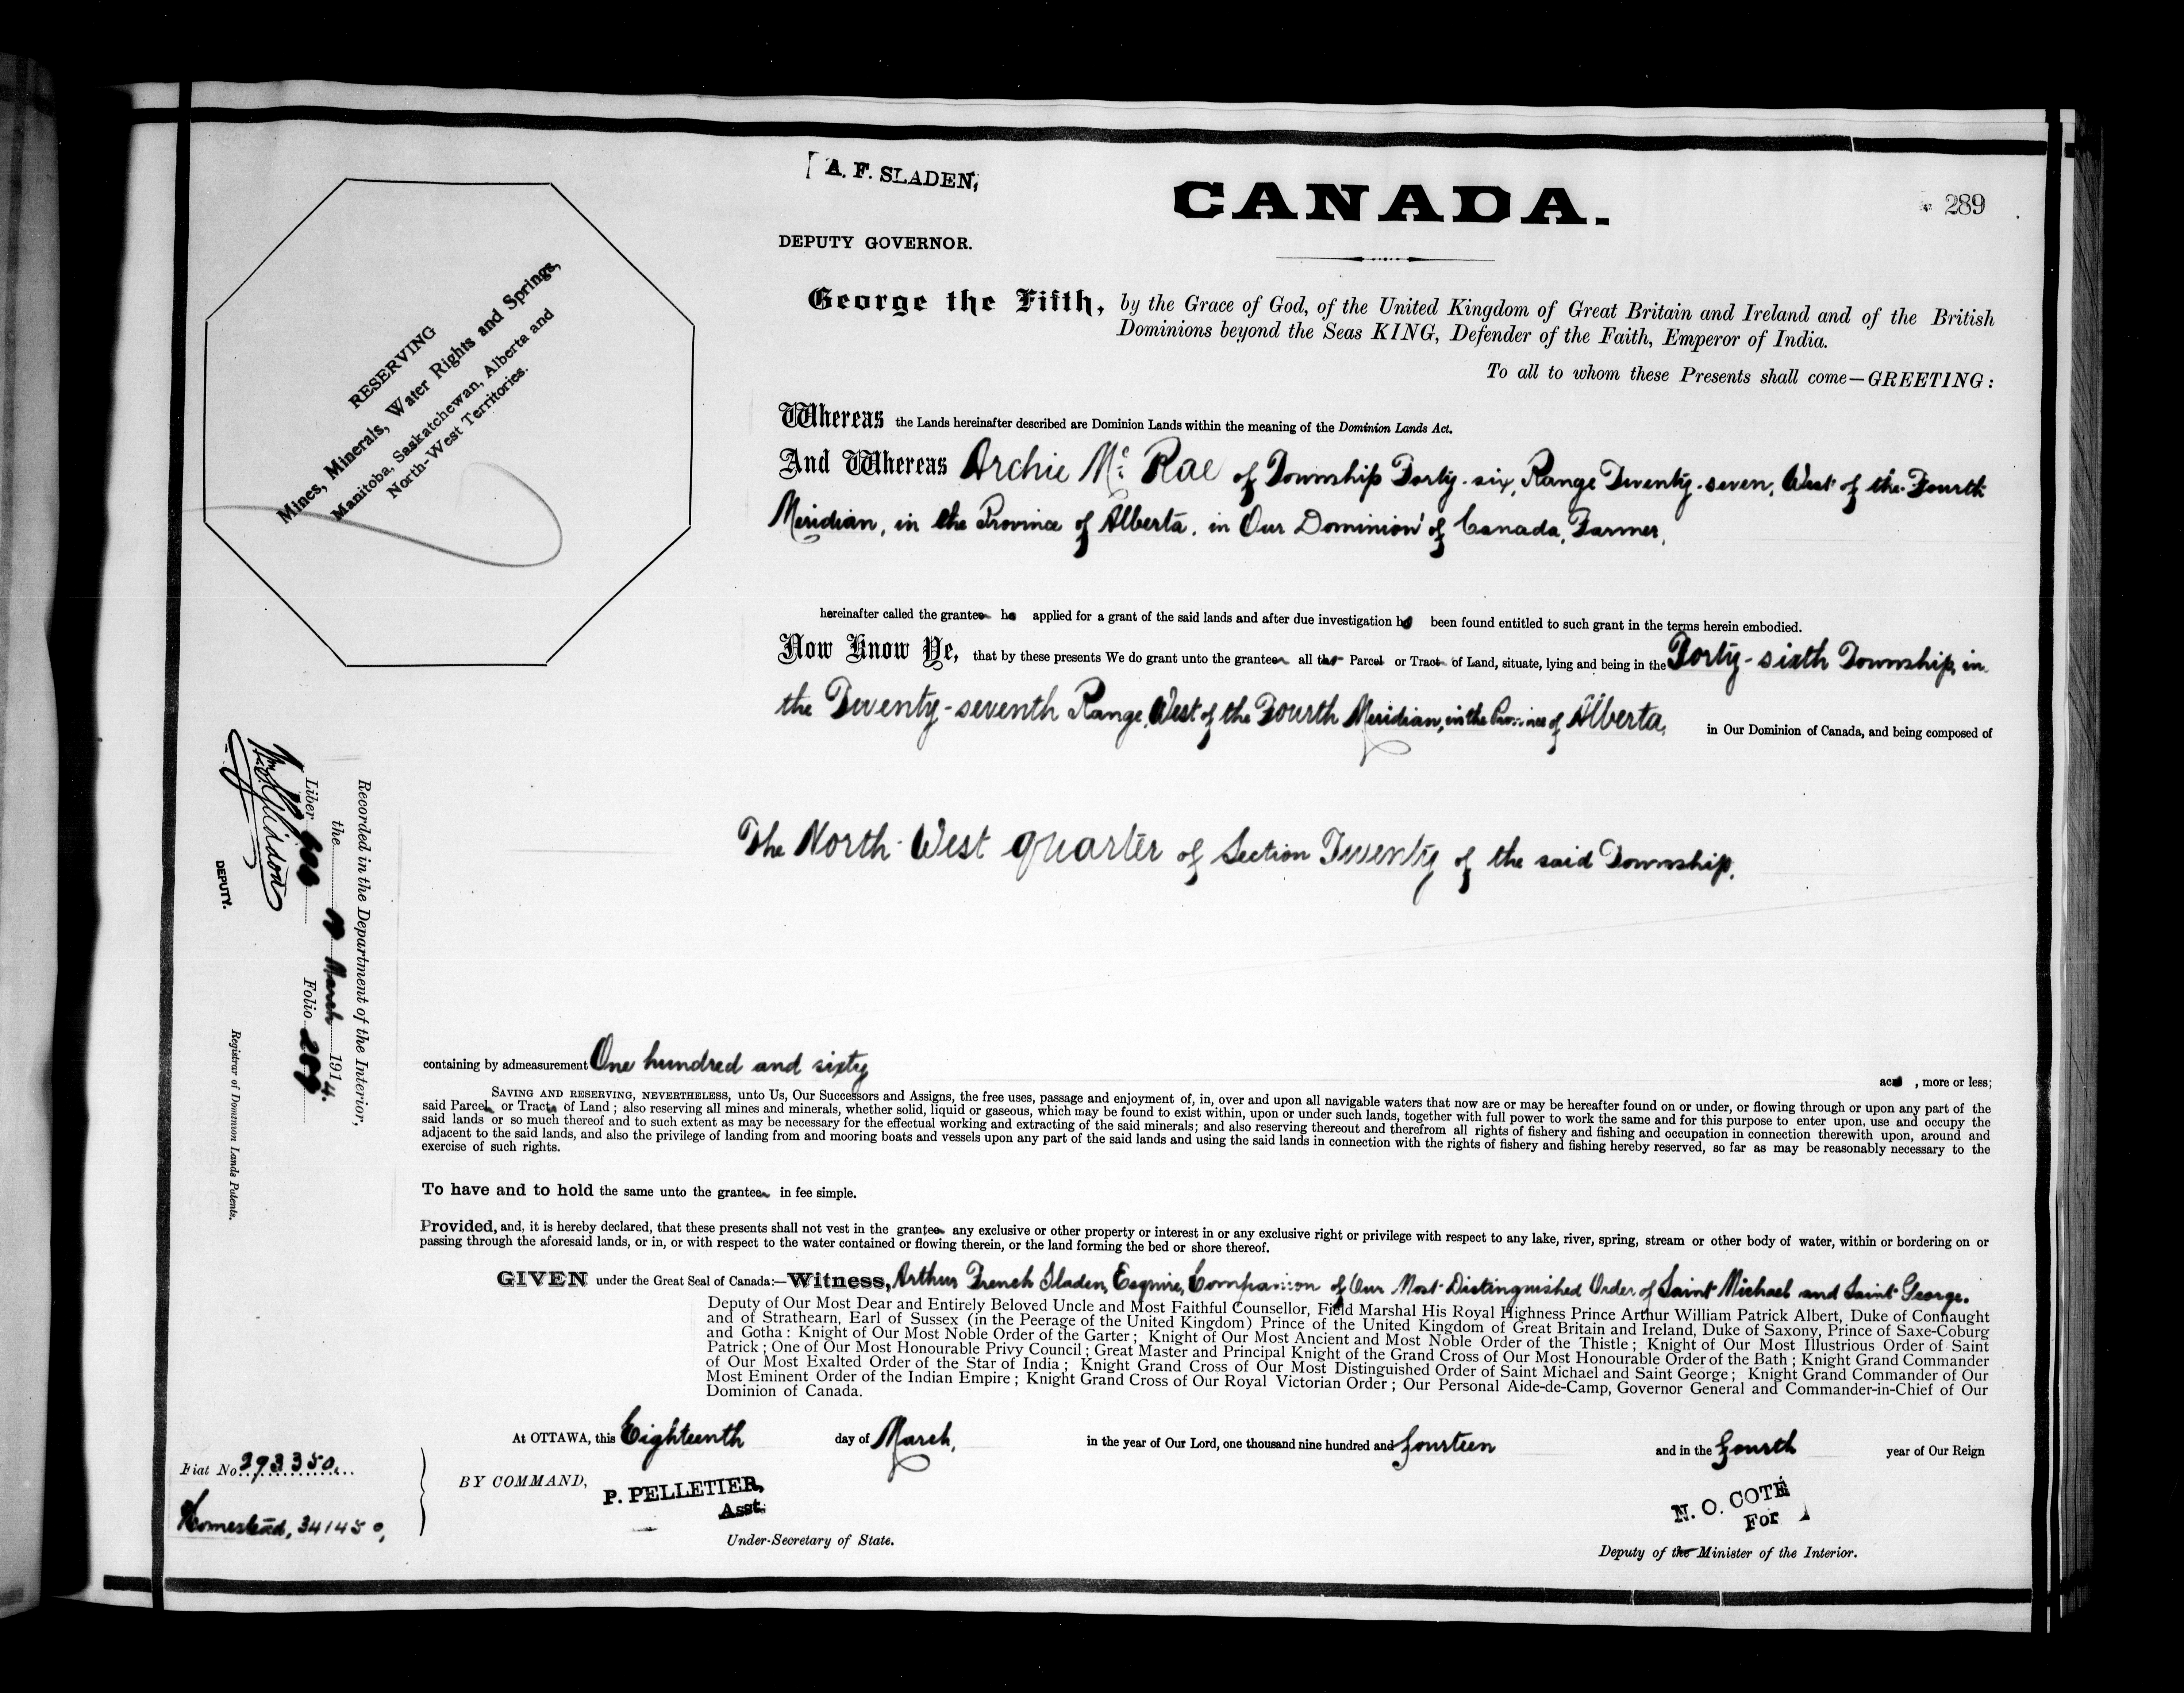 A. F. SLADEN,
DEPUTY GOVERNOR.
CANADA.
289
RESERVING
Mines, Minerals, Water Rights and Springs,
Manitoba, Saskatchewan, Alberta and
North-West Territories.
George the Fifth, by the Grace of God, of the United Kingdom of Great Britain and Ireland and of the British
Dominions beyond the Seas KING, Defender of the Faith, Emperor of India.
To all to whom these Presents shall come—GREETING:
Whereas the Lands hereinafter described are Dominion Lands within the meaning of the Dominion Lands Act.
And Whereas Archie Mc Rae of Township Forty-six, Range Twenty-seven, West of the Fourth
Meridian, in the Province of Alberta, in Our Dominion of Canada, Farmer,
hereinafter called the grantee ha applied for a grant of the said lands and after due investigation ha been found entitled to such grant in the terms herein embodied.
Now Know Ye, that by these presents We do grant unto the grantee all that Parcel or Tract of Land, situate, lying and being in the Forty-sixth Township, in
the Twenty-seventh Range, West of the Fourth Meridian, in the Province of Alberta, in Our Dominion of Canada, and being composed of
The North West quarter of Section Twenty of the said Township,
containing by admeasurement One hundred and sixty acres, more or less;
SAVING AND RESERVING, NEVERTHELESS, unto Us, Our Successors and Assigns, the free uses, passage and enjoyment of, in, over and upon all navigable waters that now are or may be hereafter found on or under, or flowing through or upon any part of the
said Parcel or Tract of Land; also reserving all mines and minerals, whether solid, liquid or gaseous, which may be found to exist within, upon or under such lands, together with full power to work the same and for this purpose to enter upon, use and occupy the
said lands or so much thereof and to such extent as may be necessary for the effectual working and extracting of the said minerals; and also reserving thereout and therefrom all rights of fishery and fishing and occupation in connection therewith upon, around and
adjacent to the said lands, and also the privilege of landing from and mooring boats and vessels upon any part of the said lands and using the said lands in connection with the rights of fishery and fishing hereby reserved, so far as may be reasonably necessary to the
exercise of such rights.
To have and to hold the same unto the grantee in fee simple.
Provided, and, it is hereby declared, that these presents shall not vest in the grantee any exclusive or other property or interest in or any exclusive right or privilege with respect to any lake, river, spring, stream or other body of water, within or bordering on or
passing through the aforesaid lands, or in, or with respect to the water contained or flowing therein, or the land forming the bed or shore thereof.
GIVEN under the Great Seal of Canada:—Witness, Arthur French Sladen, Esquire, Companion of Our Most Distinguished Order of Saint Michael and Saint George.
Deputy of Our Most Dear and Entirely Beloved Uncle and Most Faithful Counsellor, Field Marshal His Royal Highness Prince Arthur William Patrick Albert, Duke of Connaught
and of Strathearn, Earl of Sussex (in the Peerage of the United Kingdom) Prince of the United Kingdom of Great Britain and Ireland, Duke of Saxony, Prince of Saxe-Coburg
and Gotha: Knight of Our Most Noble Order of the Garter; Knight of Our Most Ancient and Most Noble Order of the Thistle; Knight of Our Most Illustrious Order of Saint
Patrick; One of Our Most Honourable Privy Council; Great Master and Principal Knight of the Grand Cross of Our Most Honourable Order of the Bath; Knight Grand Commander
of Our Most Exalted Order of the Star of India; Knight Grand Cross of Our Most Distinguished Order of Saint Michael and Saint George; Knight Grand Commander of Our
Most Eminent Order of the Indian Empire; Knight Grand Cross of Our Royal Victorian Order; Our Personal Aide-de-Camp, Governor General and Commander-in-Chief of Our
Dominion of Canada.
At OTTAWA, this Eighteenth day of March, in the year of Our Lord, one thousand nine hundred and fourteen and in the fourth year of Our Reign
BY COMMAND, P. PELLETIER,
Asst.
Under-Secretary of State.
N. O. COTÉ
For
Deputy of the Minister of the Interior.
Fiat No 293350.
Homestead, 341450,
Recorded in the Department of the Interior,
the March 1914.
Liber Folio 289
DEPUTY.
Registrar of Dominion Lands Patents.